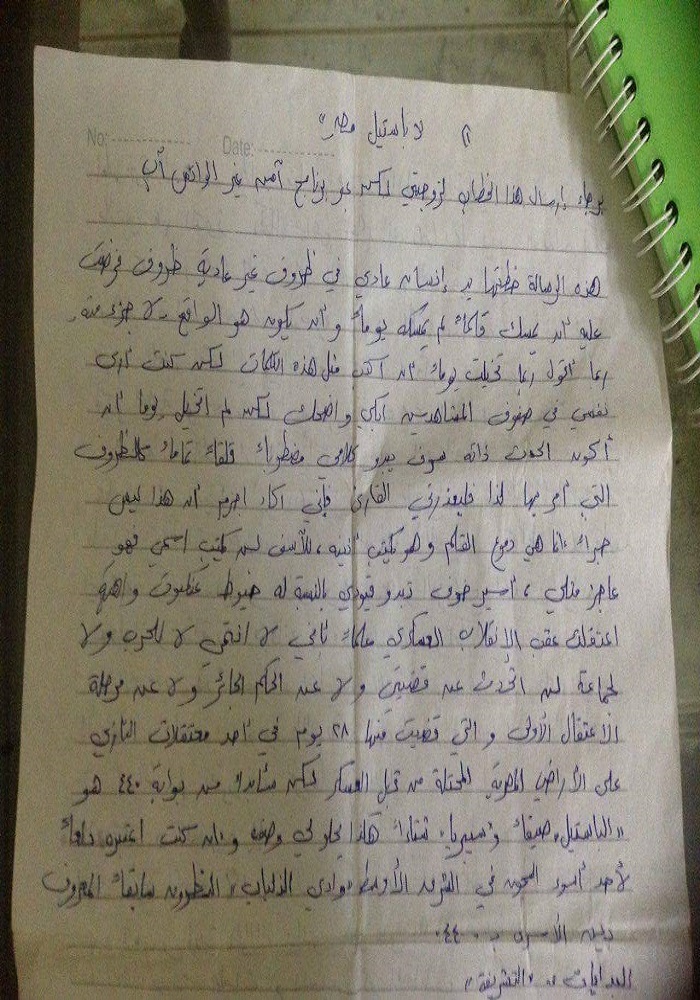 " لا باستيل مصر"
No: Date:
برجاء إرسال هذا الخطاب لزوجتي لكن عبر برنامج آمن غير الواتس أب
هذه الرسالة خطتها يد إنسان عادي في ظروف غير عادية ظروف فرضت
عليه أن يمسك قلماً لم يمسكه يوماً وأن يكون هو الواقع - لا جزء منه.
ربما أقول ربما تخيلت يوماً أن أكتب مثل هذه الكلمات لكن كنت أرى
نفسي في صفوف المشاهدين أبكي وأضحك لكن لم أتخيل يوماً أن
أكون الحدث ذاته سوف يبدو كلامي مضطرباً قلقاً تماماً كالظروف
التي أمر بها لذا فليعذرني القارئ فإني أكاد أجزم أن هذا ليس
حبراً إنما هي دموع القلم وهو يكتب أنينه، للأسف لن يكتب اسمي فهو
عاجز مثلي، أسير خوف تبدو قيودي بالنسبة له خيوط عنكبوت واهية
اعتقلت عقب الإنقلاب العسكري علماً بأني لا أنتمي لا لحزب ولا
لجماعة لن أتحدث عن قضيتي ولا عن الحكم الجائر ولا عن مرحلة
الاعتقال الأولى والتي قضيت منها ٢٨ يوم في أحد معتقلات النازي
على الأراضي المصرية المحتلة من قبل العسكر لكن سأبدأ من بوابة ٤٤٠ هو
"الباستيل" صيفاً و"سيبريا" شتاءاً هكذا يحلو لي وصفه وإن كنت أعتبره
لأحد أسوء السجون في الشرق الأوسط "وادي الذئاب" النطرون سابقاً المعروف
بليمان ٤٤٠.
البدايات .. "التشريفة"